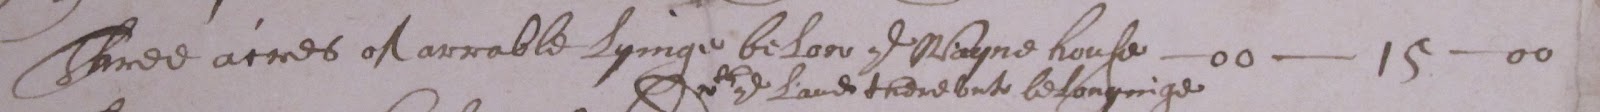 Three acres of arrable Lyinge below ye Wayne house — 00 — 15 — 00
wth ye Lands thereunto belonginge